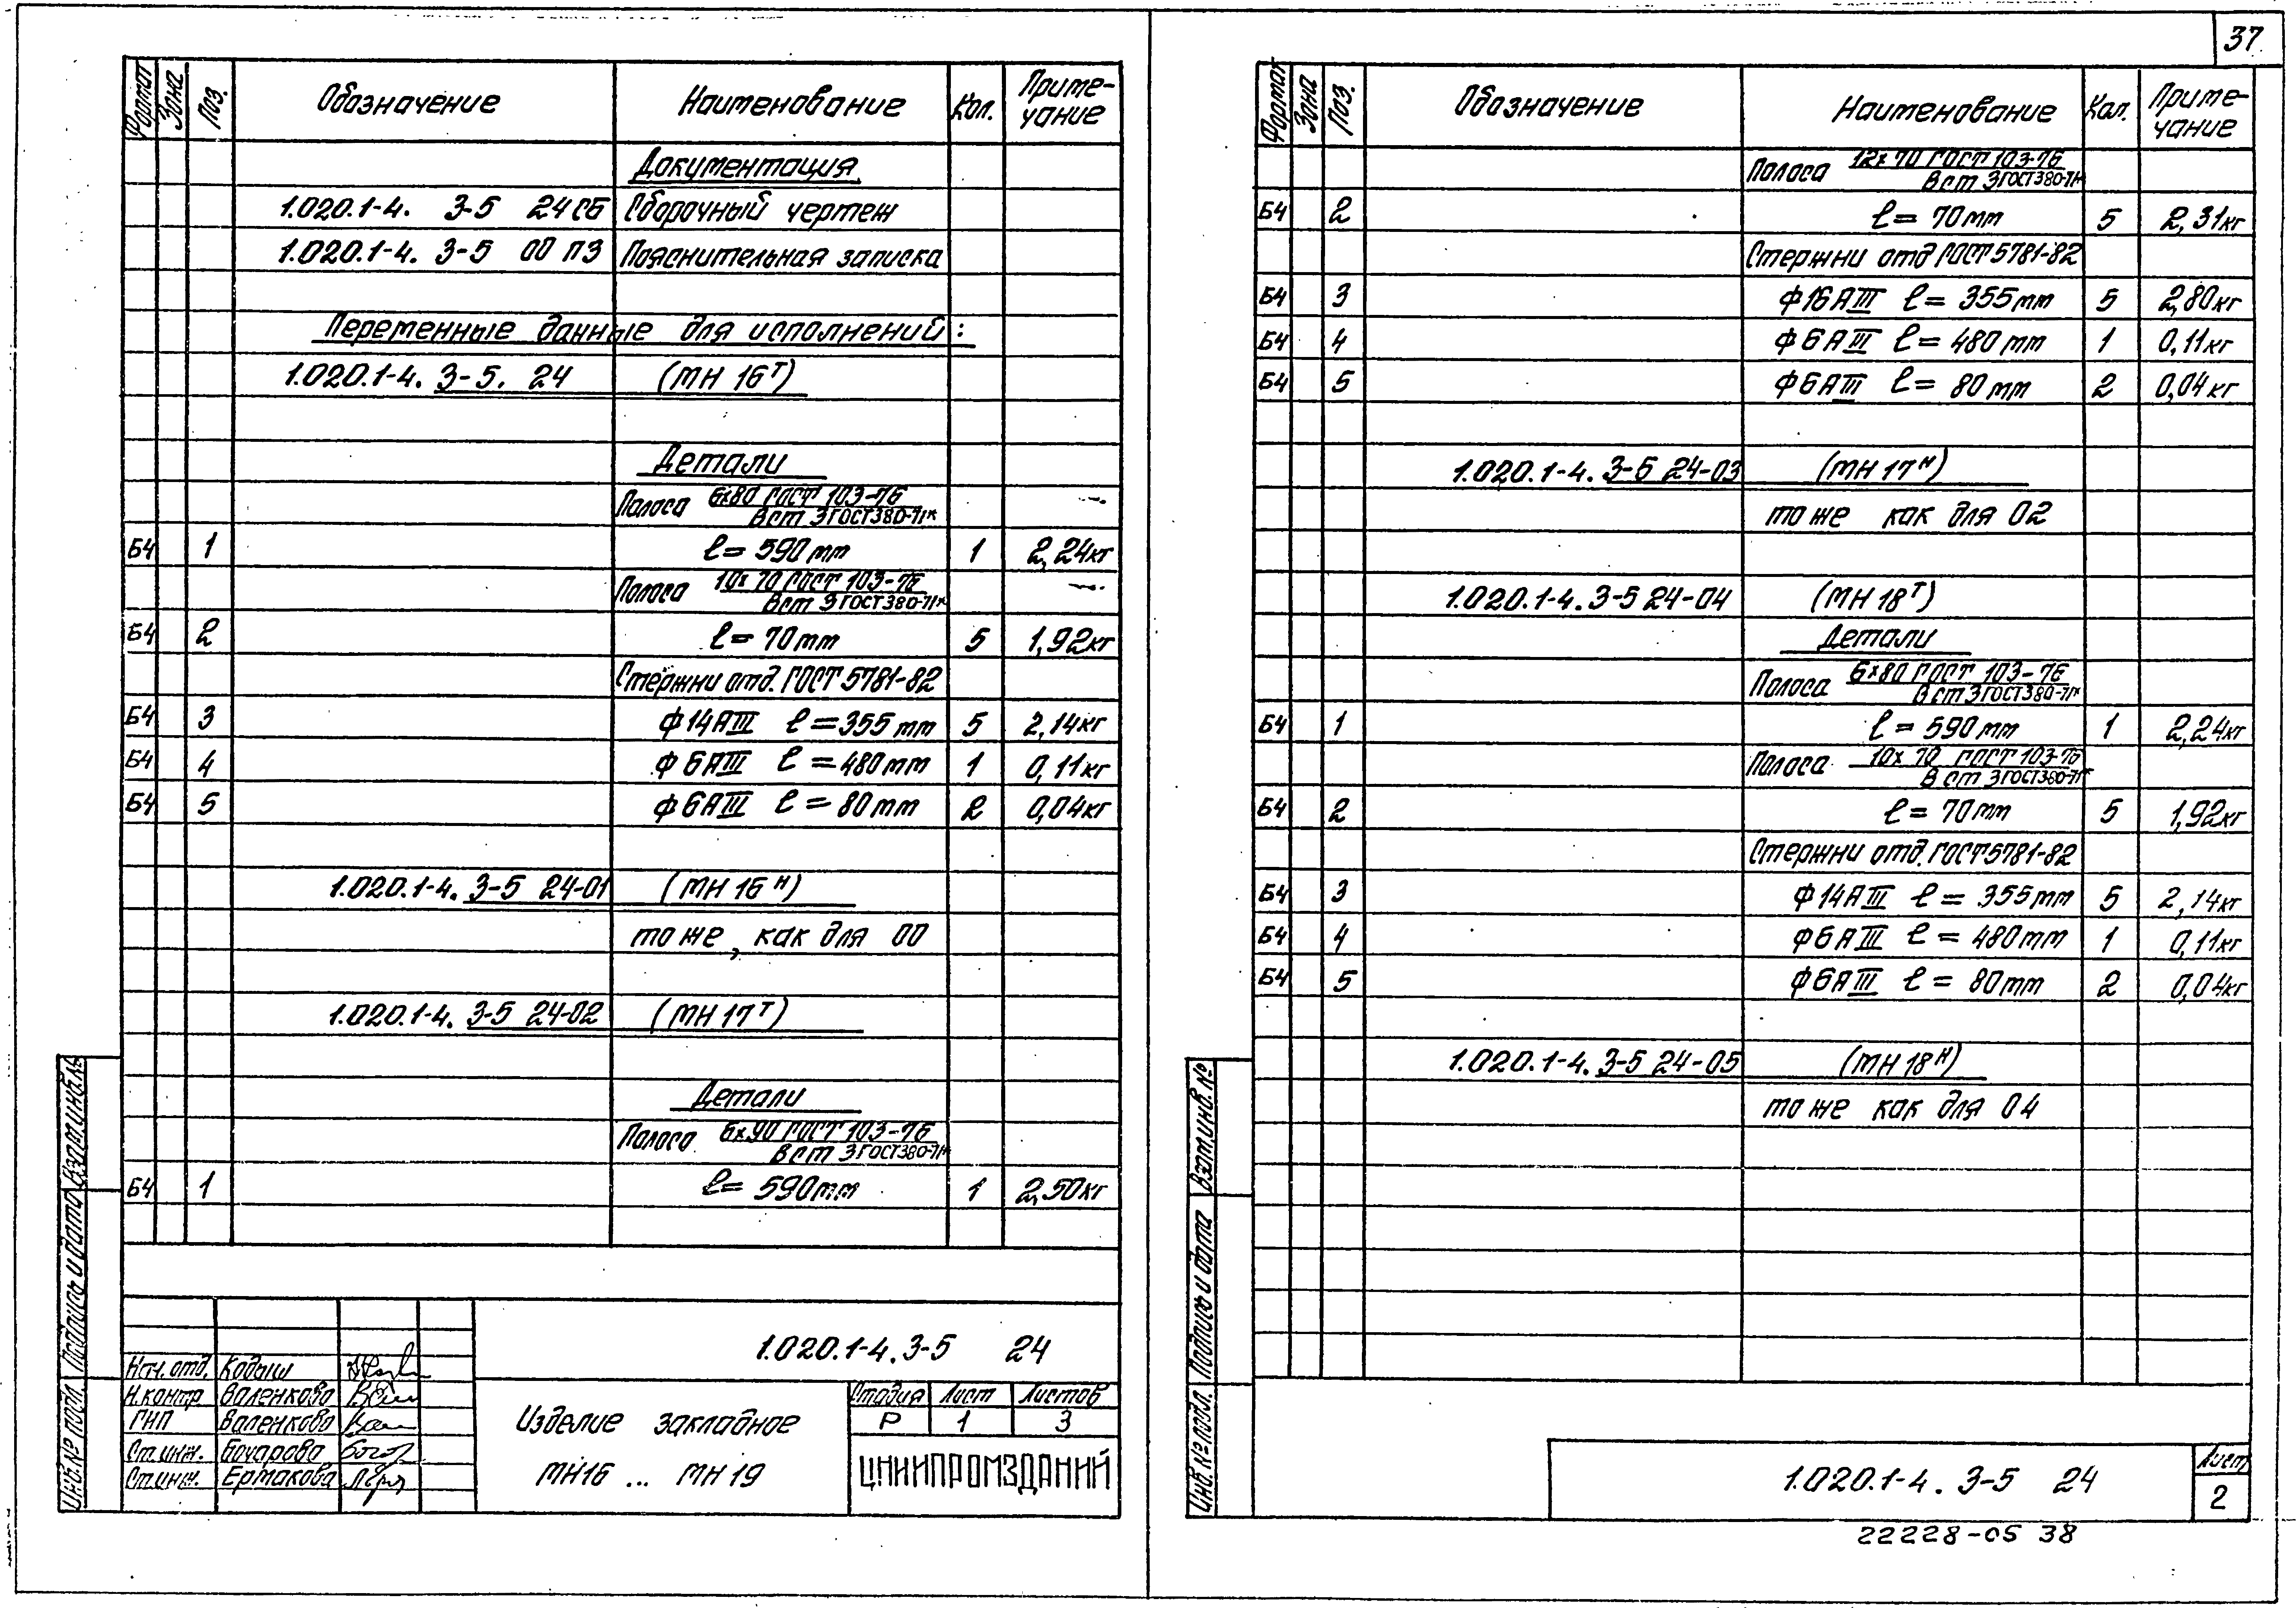 37
Формат Зона Поз. Обозначение Наименование Кол. Приме-
чание
Документация
1.020.1-4. 3-5 24СБ Сборочный чертеж
1.020.1-4. 3-5 00 ПЗ Пояснительная записка
Переменные данные для исполнений:
1.020.1-4. 3-5. 24 (МН 16Т)
Детали
Полоса 6х80 ГОСТ 103-76
Вст 3 ГОСТ 380-71*
Б4 1 ℓ= 590мм 1 2,24кг
Полоса 10х70 ГОСТ 103-76
Вст 3 ГОСТ 380-71*
Б4 2 ℓ= 70мм 5 1,92кг
Стержни отд. ГОСТ 5781-82
Б4 3 Ф14АIII ℓ=355мм 5 2,14кг
Б4 4 Ф6АIII ℓ=480мм 1 0,11кг
Б4 5 Ф6АIII ℓ=80мм 2 0,04кг
1.020.1-4. 3-5 24-01 (МН 16Н)
то же, как для 00
1.020.1-4. 3-5 24-02 (МН 17Т)
Детали
Полоса 6х90 ГОСТ 103-76
Вст 3 ГОСТ 380-71*
Б4 1 ℓ= 590мм 1 2,50кг
1.020.1-4. 3-5 24
Нач. отд. Кодыш
Н.контр Валенкова
ГИП Валенкова
Ст.инж. Бочарова
Ст.инж. Ермакова
Изделие закладное
МН16 ... МН 19
Стадия Лист Листов
Р 1 3
ЦНИИПРОМЗДАНИЙ
Инв.№ подл. Подпись и дата Взам.инв.№
Формат Зона Поз. Обозначение Наименование Кол. Приме-
чание
Полоса 12х70 ГОСТ 103-76
Вст 3 ГОСТ 380-71*
Б4 2 ℓ= 70мм 5 2,31кг
Стержни отд ГОСТ 5781-82
Б4 3 Ф16АIII ℓ= 355мм 5 2,80кг
Б4 4 Ф6АIII ℓ= 480мм 1 0,11кг
Б4 5 Ф6АIII ℓ= 80мм 2 0,04кг
1.020.1-4. 3-5 24-03 (МН 17Н)
то же как для 02
1.020.1-4. 3-5 24-04 (МН 18Т)
Детали
Полоса 6х80 ГОСТ 103-76
Вст 3 ГОСТ 380-71*
Б4 1 ℓ= 590мм 1 2,24кг
Полоса 10х70 ГОСТ 103-76
Вст 3 ГОСТ 380-71*
Б4 2 ℓ= 70мм 5 1,92кг
Стержни отд. ГОСТ 5781-82
Б4 3 Ф14АIII ℓ= 355мм 5 2,14кг
Б4 4 Ф6АIII ℓ= 480мм 1 0,11кг
Б4 5 Ф6АIII ℓ= 80мм 2 0,04кг
1.020.1-4. 3-5 24-05 (МН 18Н)
то же как для 04
1.020.1-4. 3-5 24
Лист
2
Инв.№ подл. Подпись и дата Взам.инв.№
22228-05 38